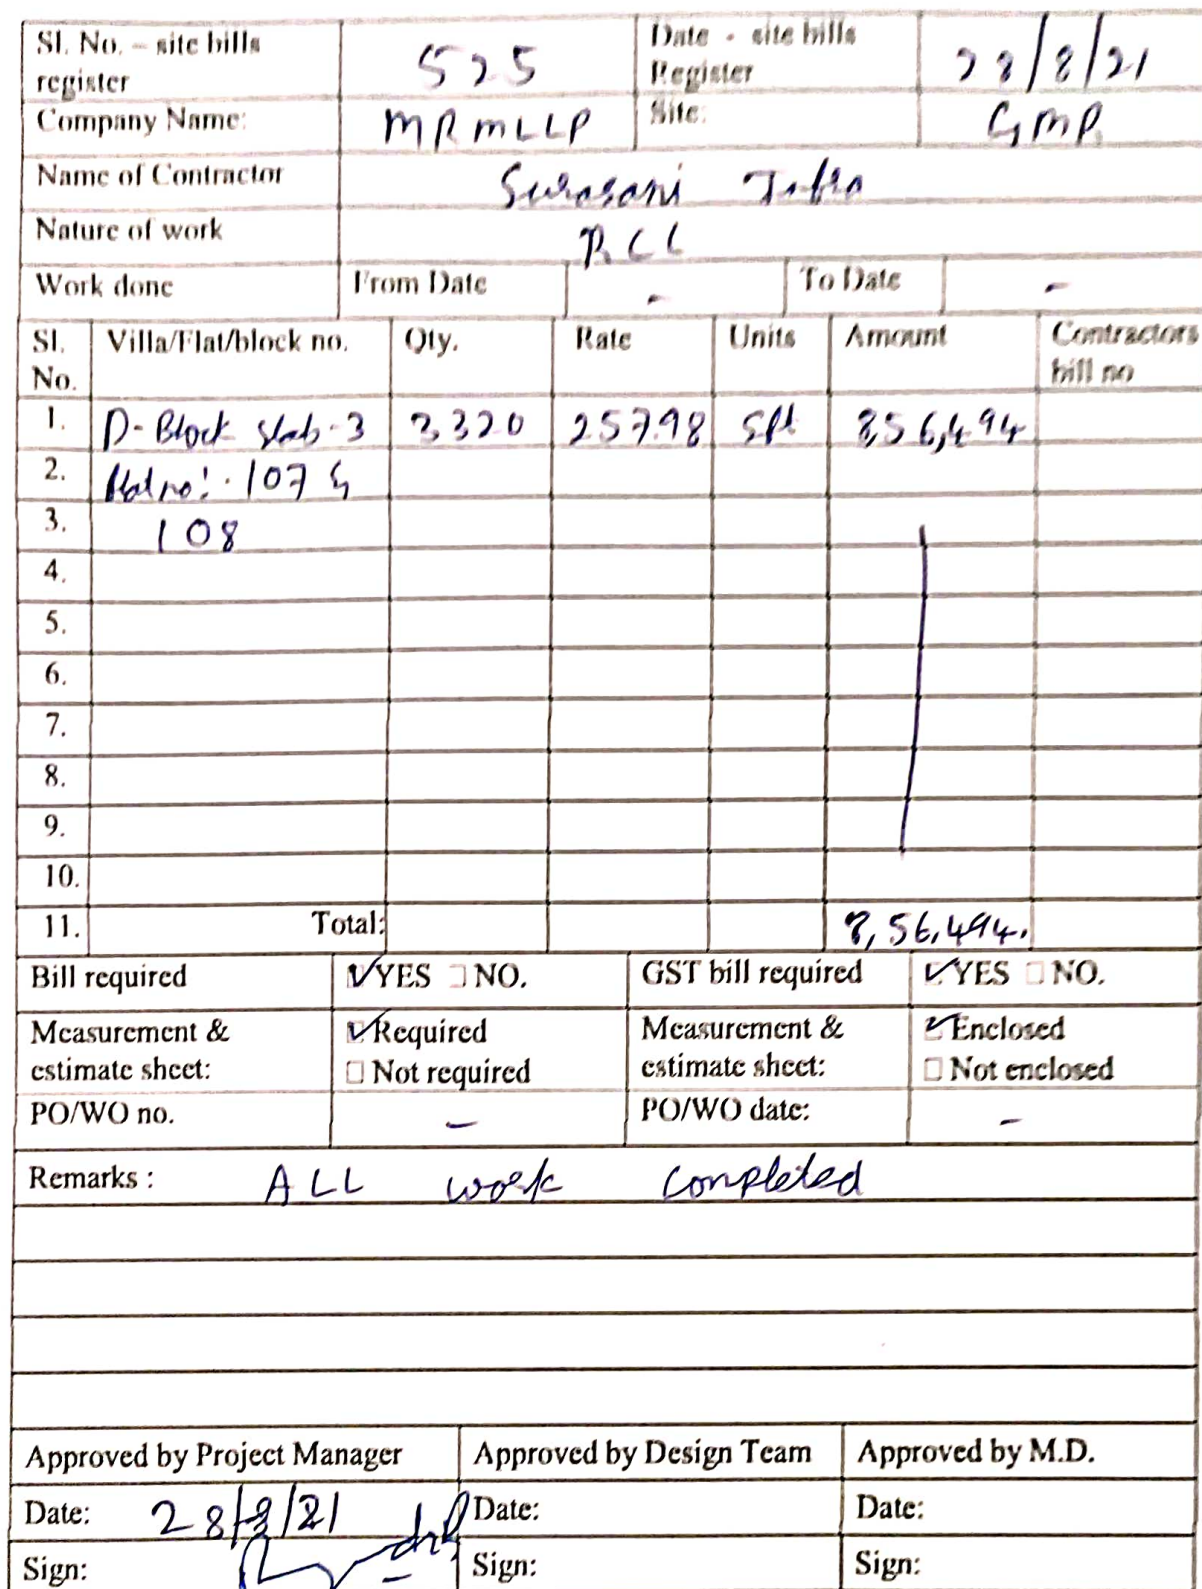 Sl. No. – site bills register 525 Date - site bills Register 28/8/21
Company Name: MRMLLP Site: GMR
Name of Contractor Surasani Infra
Nature of work RCC
Work done From Date - To Date -
Sl. No. Villa/Flat/block no. Qty. Rate Units Amount Contractors bill no
1. D-Block slab-3 3320 257.98 Sft 8,56,494
2. flat no: 107 &
3. 108
4.
5.
6.
7.
8.
9.
10.
11. Total: 8,56,494.
Bill required YES NO. GST bill required YES NO.
Measurement & estimate sheet: Required Measurement & estimate sheet: Enclosed
Not required Not enclosed
PO/WO no. - PO/WO date: -
Remarks : ALL work completed
Approved by Project Manager Approved by Design Team Approved by M.D.
Date: 28/8/21 Date: Date:
Sign: Sign: Sign: